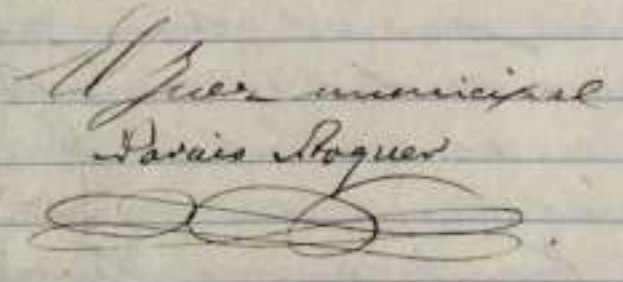 El Juez municipal
Roquer